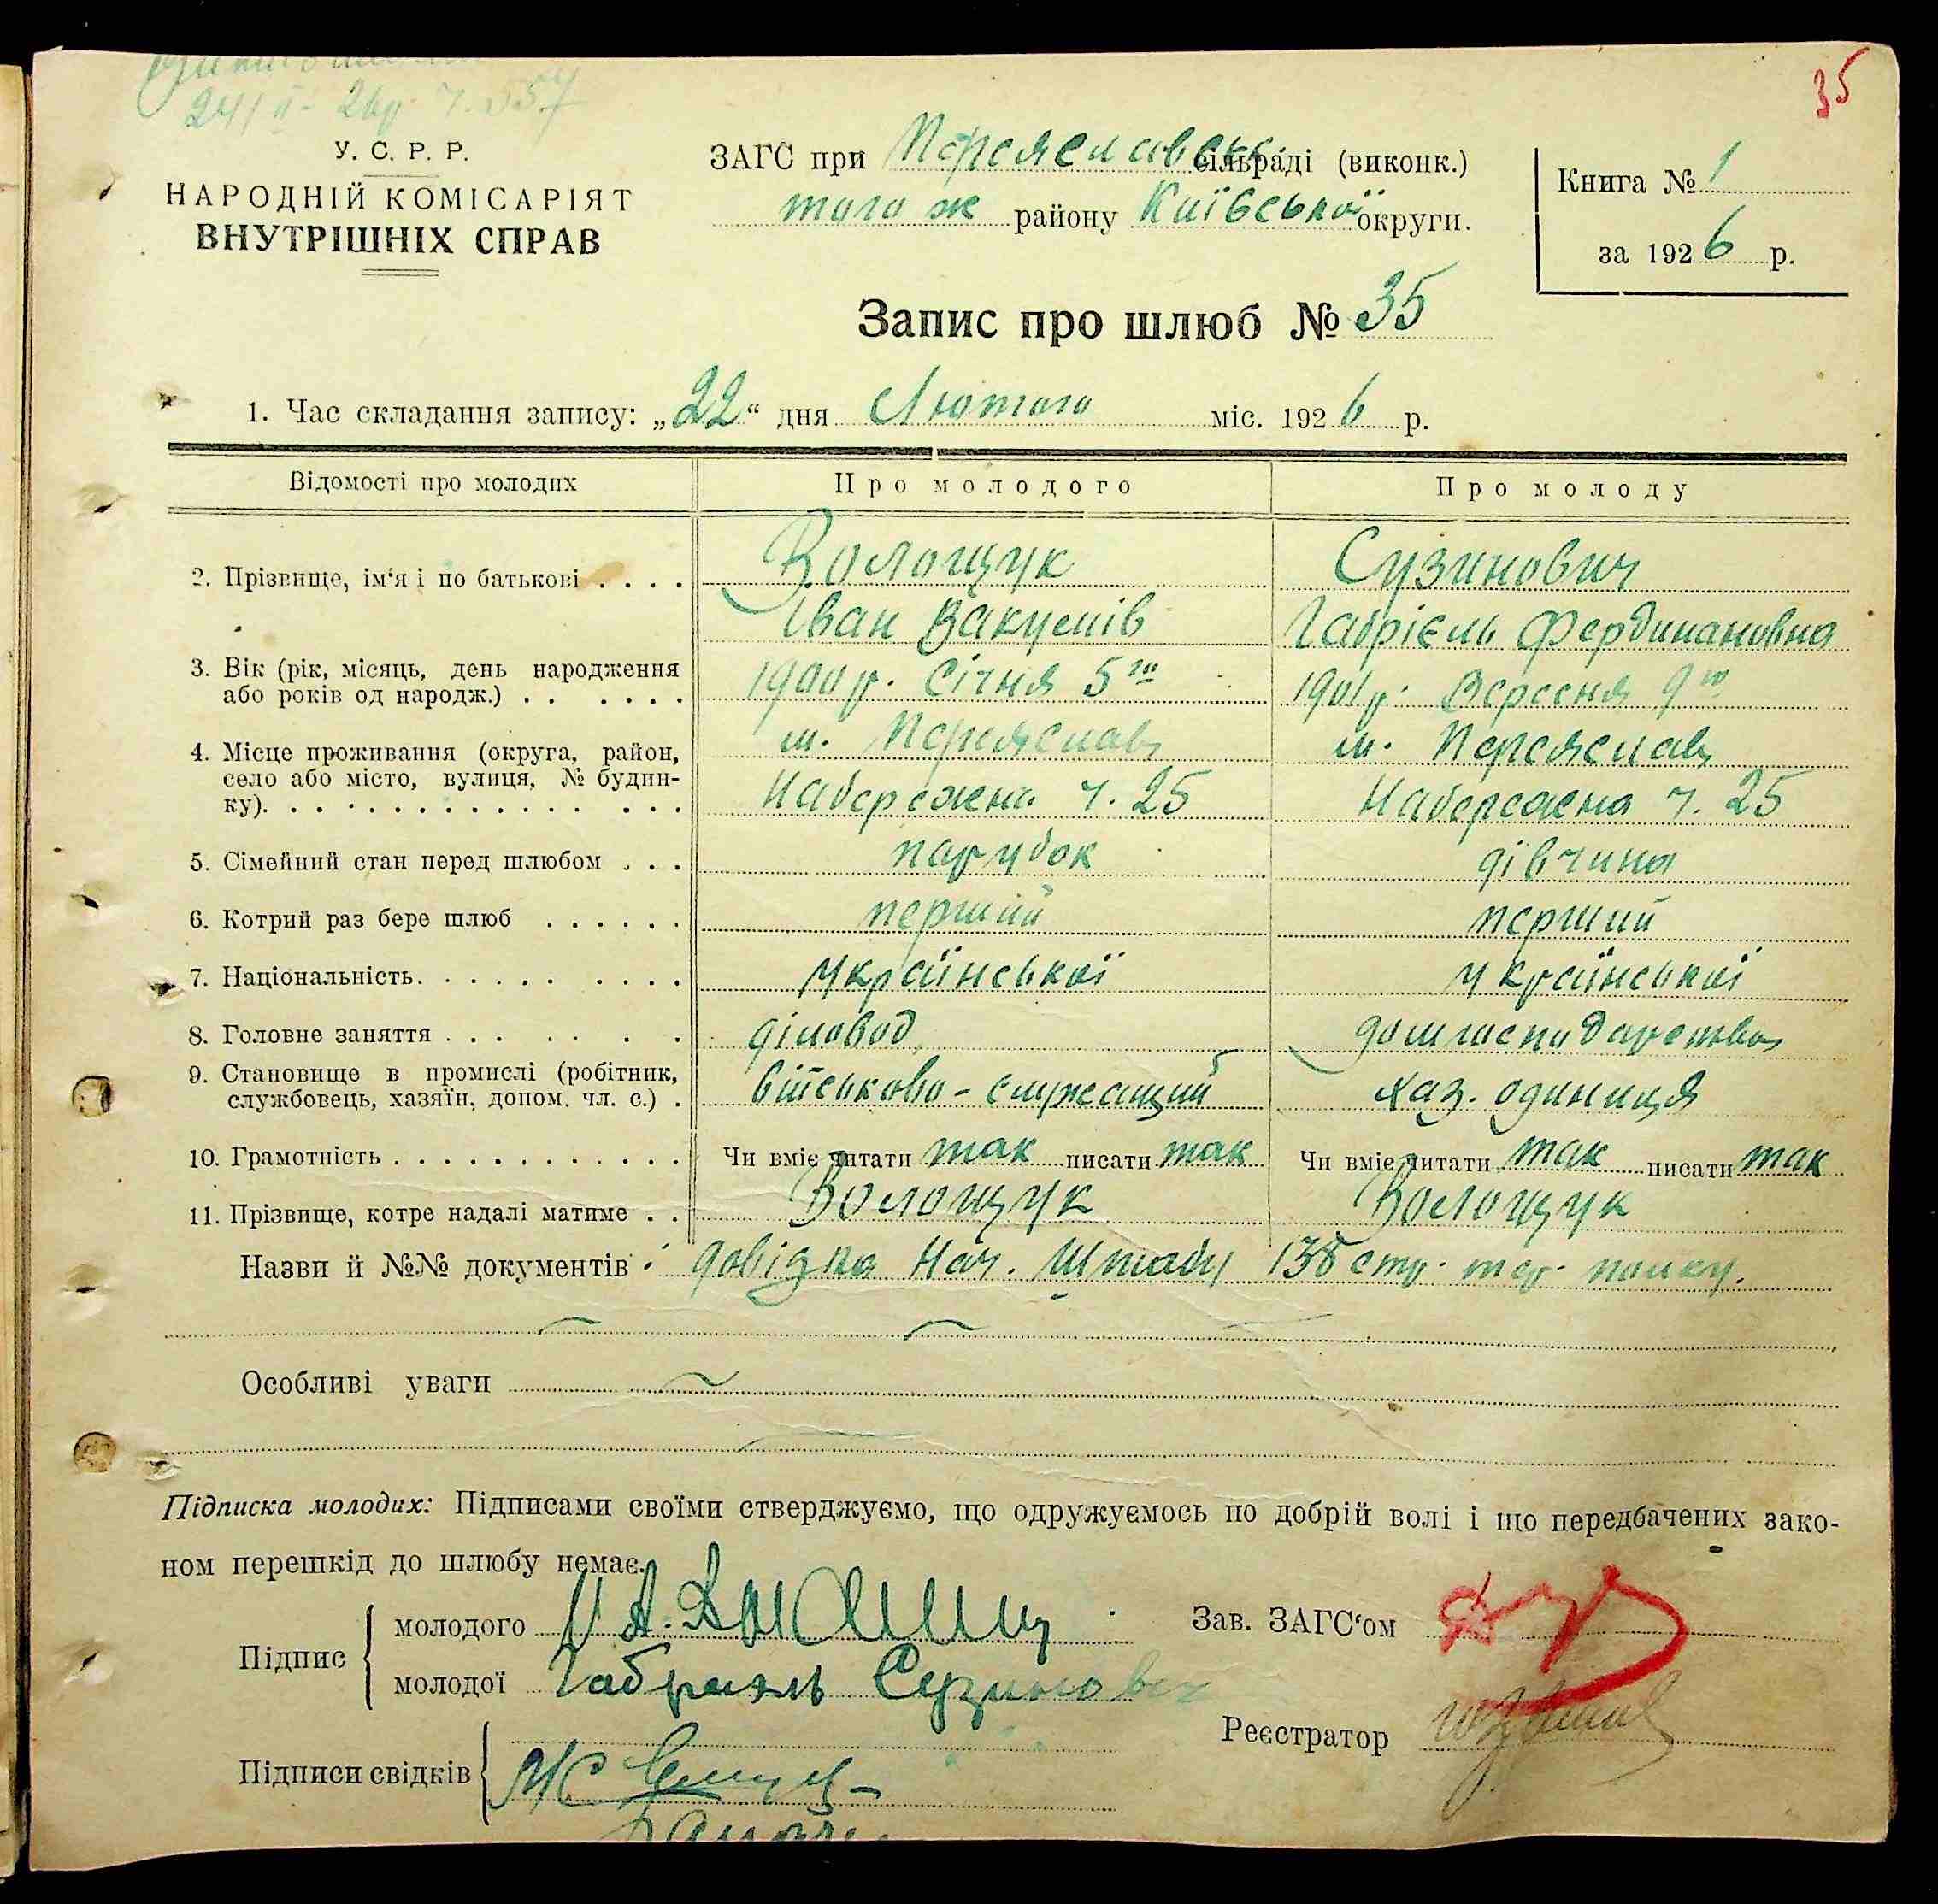 35
24/II - 26р. ч. 357
У. С. Р. Р.
НАРОДНІЙ КОМІСАРІЯТ
ВНУТРІШНІХ СПРАВ
ЗАГС при Переяславськ. сільраді (виконк.)
того ж району Київської округи.
Книга № 1
за 1926 р.
Запис про шлюб № 35
1. Час складання запису: „22“ дня Лютого міс. 1926 р.
Відомості про молодих
Про молодого
Про молоду
2. Прізвище, ім‘я і по батькові . . . .
Волощук
Іван Вакулків
Сузинович
Габрієль Фердинановна
3. Вік (рік, місяць, день народження
або років од народж.) . . . . . .
1900 р. Січня 5го
1901 р. Вересня 9го
4. Місце проживання (округа, район,
село або місто, вулиця, № будин-
ку). . . . . . . . . . . . . . . .
м. Переяслав
Набережна ч. 25
м. Переяслав
Набережна ч. 25
5. Сімейний стан перед шлюбом . . .
парубок
дівчина
6. Котрий раз бере шлюб . . . . . .
перший
перший
7. Національність. . . . . . . . . .
української
української
8. Головне заняття . . . . . . .
діловод
домгосподарство
9. Становище в промислі (робітник,
службовець, хазяїн, допом. чл. с.) .
військово-служащий
хаз. одиниця
10. Грамотність . . . . . . . . . . . . .
Чи вміє читати так писати так
Чи вміє читати так писати так
11. Прізвище, котре надалі матиме . .
Волощук
Волощук
Назви й №№ документів: довідка Нач. Штабу 138 стр. тер. полку.
Особливі уваги
Підписка молодих: Підписами своїми стверджуємо, що одружуємось по добрій волі і що передбачених зако-
ном перешкід до шлюбу немає.
Підпис
молодого
молодої Габриэль Сузинович
Зав. ЗАГС‘ом
Реєстратор
Підписи свідків